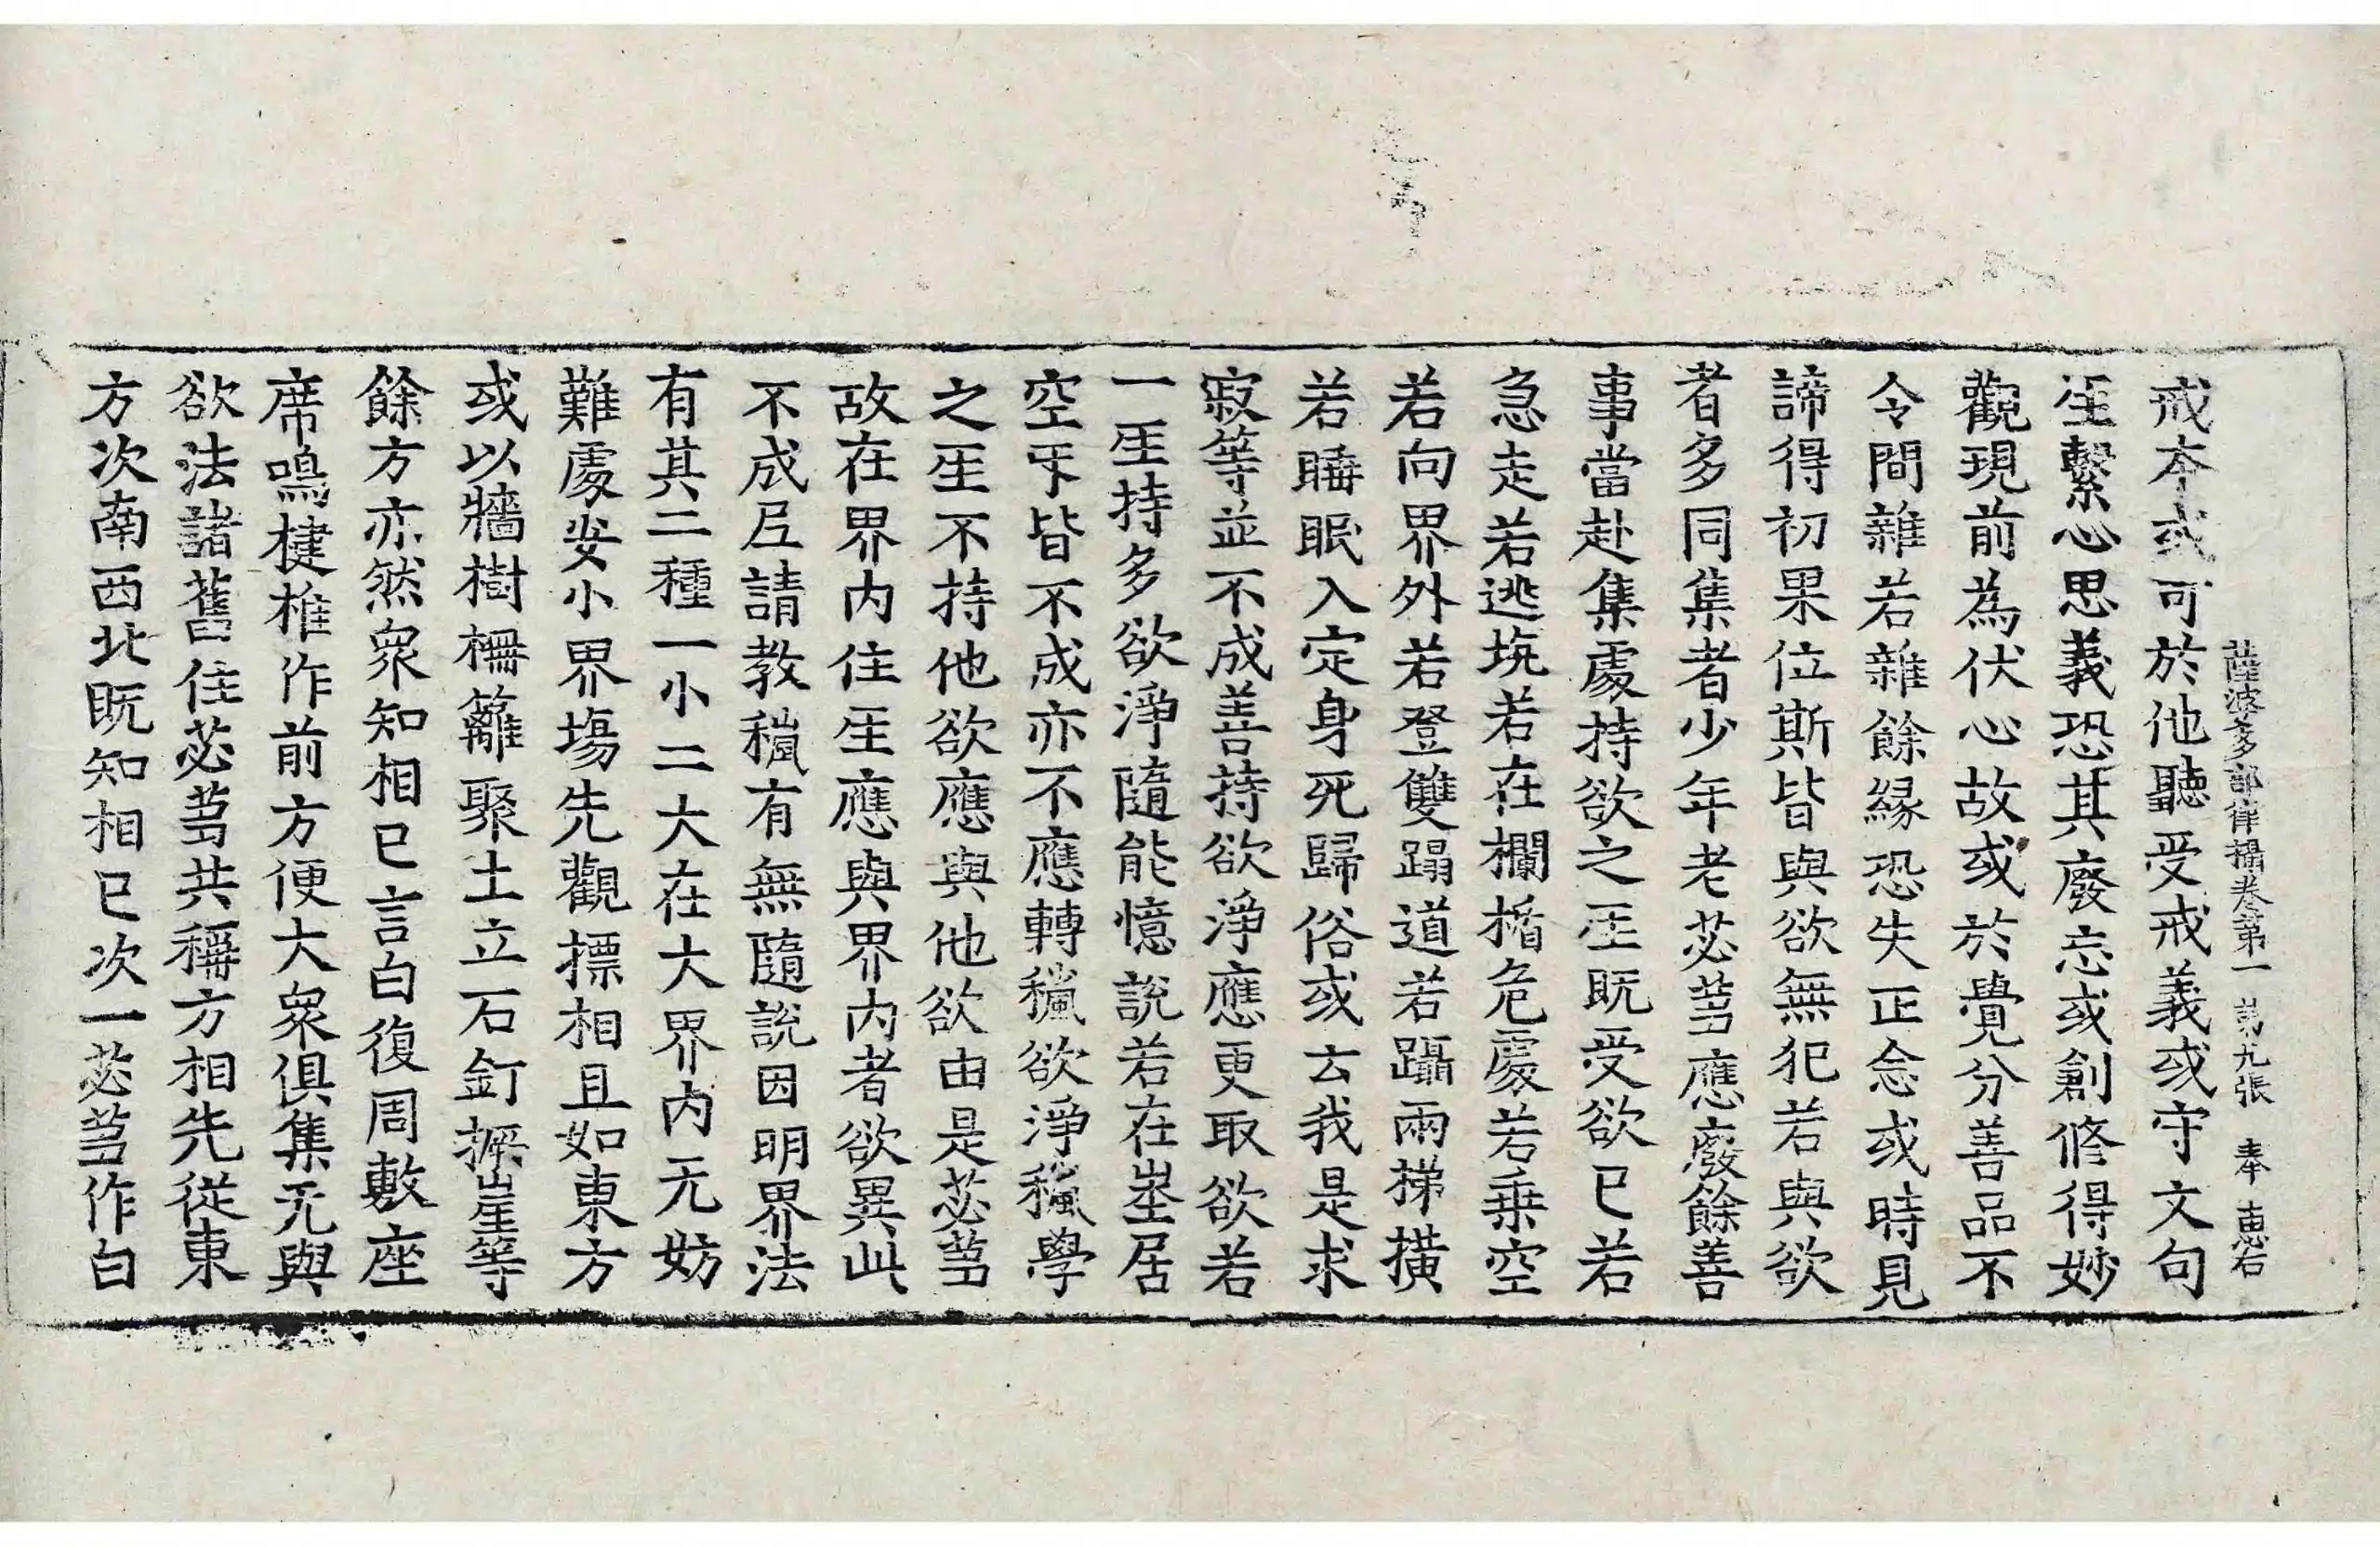 薩波多部律攝卷第一 第九張 奉 惠石
戒本或可於他聽受戒義或守文句
𤯔繫心思義恐其廢忘或創修得妙
觀現前為伏心故或於覺分善品不
令間雜若雜餘緣恐失正念或時見
諦得初果位斯皆與欲無犯若與欲
者多同集者少年老苾芻應廢餘善
事當赴集處持欲之𤯔既受欲已若
急走若逃坑若在欄楯危處若乗空
若向界外若登雙蹋道若躡兩梯撗
若睡眠入定身死歸俗或云我是求
寂等並不成善持欲淨應更取欲若
一𤯔持多欲淨隨能憶說若在埊居
空下皆不成亦不應轉𥠢欲淨𥠢學
之𤯔不持他欲應與他欲由是苾芻
故在界內住𤯔應與界內者欲異此
不成尼請教𥠢有無隨說因明界法
有其二種一小二大在大界內无妨
難處安小界場先觀摽相且如東方
或以牆樹柵籬聚土立石釘橛崖等
餘方亦然衆知相已言白復周敷座
席鳴揵椎作前方便大衆俱集无與
欲法諸舊住苾芻共稱方相先從東
方次南西北既知相已次一苾芻作白